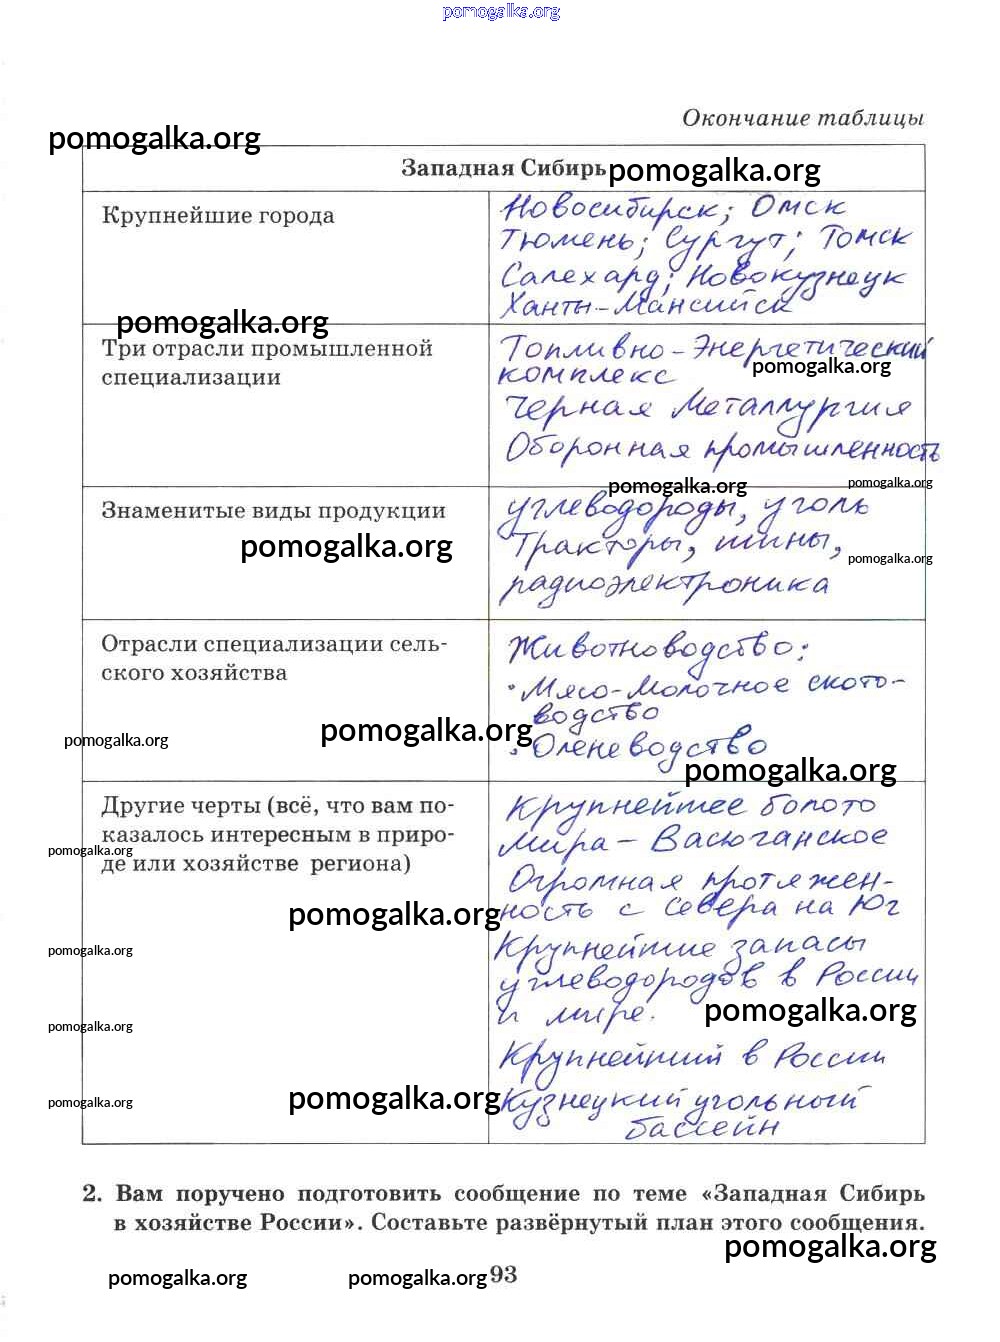 pomogalka.org
Окончание таблицы
pomogalka.org
Западная Сибирь
pomogalka.org
Крупнейшие города
Новосибирск; Омск
Тюмень; Сургут; Томск
Салехард; Новокузнецк
Ханты-Мансийск
pomogalka.org
Три отрасли промышленной
специализации
Топливно-Энергетический
комплекс
pomogalka.org
Черная Металлургия
Оборонная промышленность
pomogalka.org
pomogalka.org
Знаменитые виды продукции
углеводороды, уголь
Тракторы, шины,
радиоэлектроника
pomogalka.org
pomogalka.org
Отрасли специализации сель-
ского хозяйства
Животноводство:
• Мясо-Молочное ското-
водство
• Оленеводство
pomogalka.org
pomogalka.org
pomogalka.org
Другие черты (всё, что вам по-
казалось интересным в приро-
де или хозяйстве региона)
Крупнейшее болото
Мира – Васюганское
Огромная протяжен-
ность с Севера на Юг
Крупнейшие запасы
углеводородов в России
и мире.
Крупнейший в России
Кузнецкий угольный
бассейн
pomogalka.org
pomogalka.org
pomogalka.org
pomogalka.org
pomogalka.org
pomogalka.org
pomogalka.org
2. Вам поручено подготовить сообщение по теме «Западная Сибирь
в хозяйстве России». Составьте развёрнутый план этого сообщения.
pomogalka.org
pomogalka.org
pomogalka.org
93